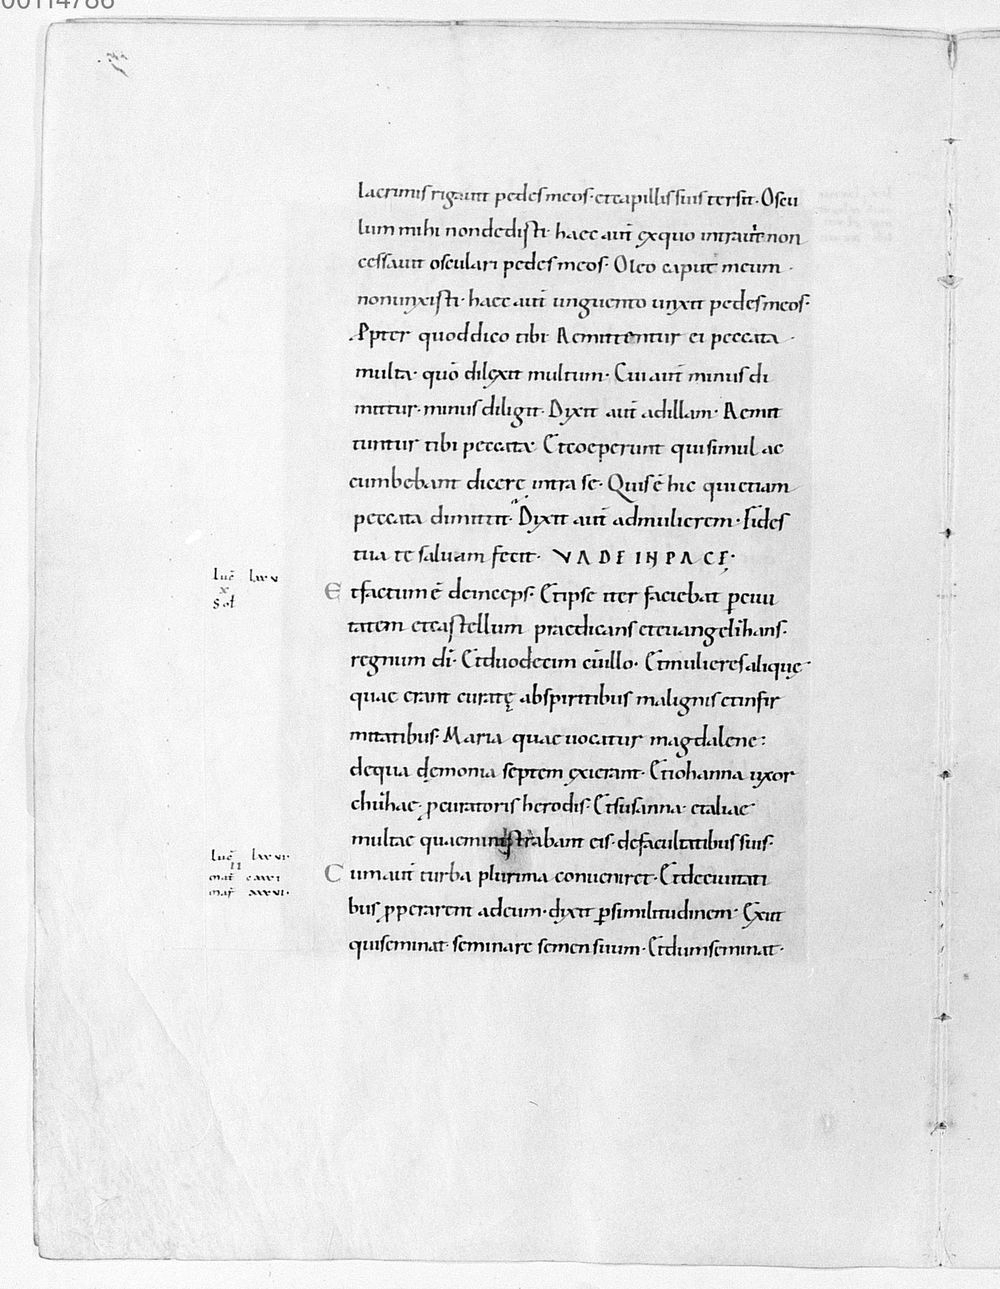 00114786
lacrimis rigauit pedes meos · et capillis suis tersit · Oscu
lum mihi non dedisti · haec aut̄ ex quo intrauit non
cessauit osculari pedes meos · Oleo caput meum ·
non unxisti · haec aut̄ unguento unxit pedes meos ·
Ppter quod dico tibi · Remittentur ei peccata ·
multa · quō dilexit multum · Cui aut̄ minus di
mittur · minus diligit · Dixit aut̄ ad illam · Remit
tuntur tibi peccata · Et coeperunt qui simul ac
cumbebant dicere intra se · Quis ē hic qui etiam
peccata dimittit · Dixit aut̄ ad mulierem · Fides
tua te saluam fecit · VADE IN PACE ·
Luc̄ lxxv
x
Sol̄
Et factum ē deinceps · Et ipse iter faciebat p̱ ciui
tatem et castellum praedicans et euangelihans ·
regnum dī · Et duodecim cū illo · Et mulieres aliquę
quae erant curatę ab spiritibus malignis et infir
mitatibus · Maria quae uocatur magdalene :
de qua dęmonia septem exierant · Et iohanna uxor
chuhae · pcuratoris herodis · Et susanna · et aliae
multae quae ministrabant eis · de facultatibus suis ·
Luc̄ lxxvi ·
II
mat̄ cxxxi
mar̄ xxxvi ·
Cum aut̄ turba plurima conueniret · Et de ciuitati
bus pperarent ad eum · dixit p̱ similitudinem · Exiit
qui seminat · seminare semen suum · Et dum seminat ·